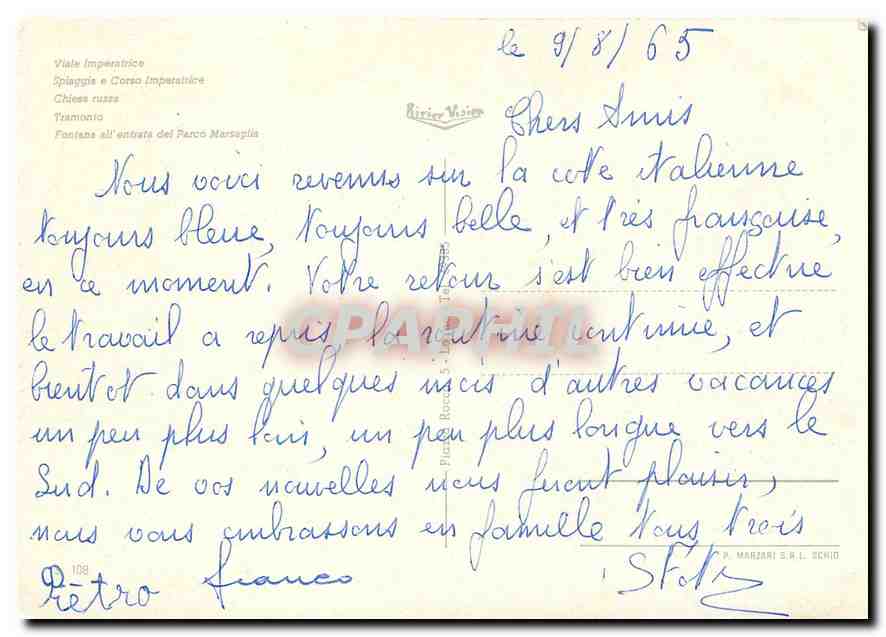 le 9/8/65
Viale Imperatrice
Spiaggia e Corso Imperatrice
Chiesa russa
Tramonto
Fontana all'entrata del Parco Marsaglia
Chers Amis
Nous voici revenus sur la cote italienne
toujours bleue, toujours belle, et très française,
en ce moment. Votre retour s'est bien effectue
le travail a repris, la routine continue, et
bientot dans quelques mois d'autres vacances
un peu plus loin, un peu plus longue vers le
Sud. De vos nouvelles nous feront plaisir,
nous vous embrassons en famille tous trois
108
P. MARZARI S.R.L. SCHIO
Piètro franco
CPAPHIL